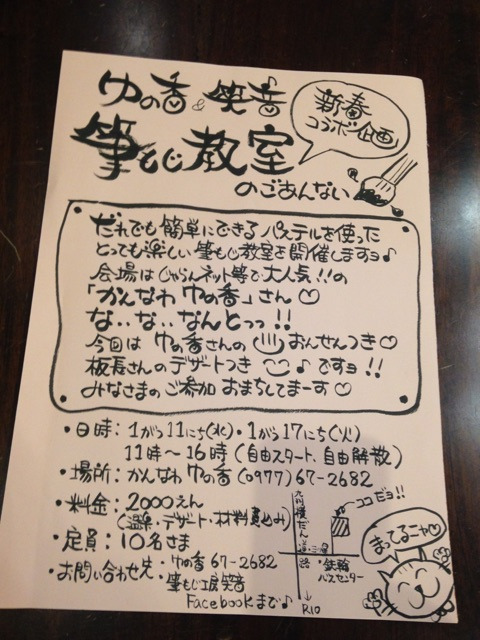 ゆの香&笑音
新春
コラボ企画
筆もじ教室
のごあんない
だれでも簡単にできるパステルを使った
とっても楽しい筆もじ教室を開催しますョ♪
会場はじゃらんネット等で大人気!!の
「かんなわ ゆの香」さん♡
な、、な、、なんとっっ!!
今回は ゆの香さんの♨おんせんつき♡
板長さんのデザートつき ♪ですョ!!
みなさまのご参加おまちしてまーす♡
・日時:1がつ11にち(水)・1がつ17にち(火)
11時〜16時(自由スタート、自由解散)
・場所:かんなわ ゆの香(0977)67-2682
・料金:2000えん
(温泉・デザート・材料費込み)
・定員:10名さま
・お問い合わせ先・ゆの香 67-2682
・筆もじ工房 笑音
Facebookまで♪
ココだョ!!
九州横だん道路
・鉄輪
バスセンター
↓
R10
まってるニャ♡